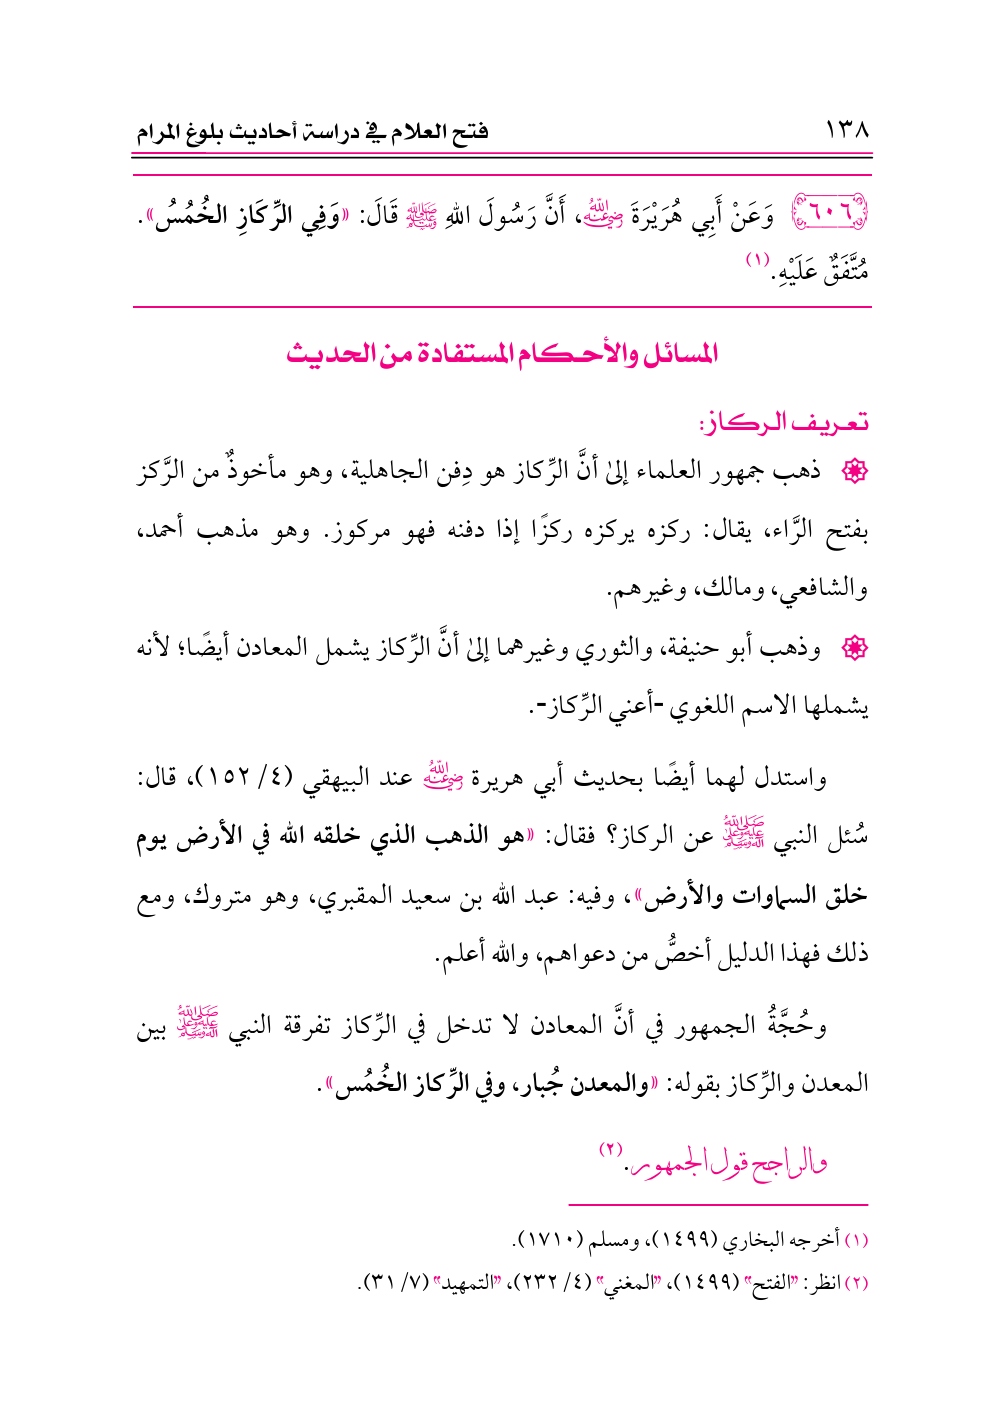 ١٣٨ فتح العلام في دراسة أحاديث بلوغ المرام
﴿٦٠٦﴾ وَعَنْ أَبِي هُرَيْرَةَ رضي الله عنه، أَنَّ رَسُولَ اللهِ ﷺ قَالَ: «وَفِي الرِّكَازِ الخُمُسُ».
مُتَّفَقٌ عَلَيْهِ.(١)
المسائل والأحكام المستفادة من الحديث
تعريف الركاز:
ذهب جمهور العلماء إلىٰ أنَّ الرِّكاز هو دِفن الجاهلية، وهو مأخوذٌ من الرَّكز
بفتح الرَّاء، يقال: ركزه يركزه ركزًا إذا دفنه فهو مركوز. وهو مذهب أحمد،
والشافعي، ومالك، وغيرهم.
وذهب أبو حنيفة، والثوري وغيرهما إلىٰ أنَّ الرِّكاز يشمل المعادن أيضًا؛ لأنه
يشملها الاسم اللغوي -أعني الرِّكاز-.
واستدل لهما أيضًا بحديث أبي هريرة رضي الله عنه عند البيهقي (٤/ ١٥٢)، قال:
سُئل النبي ﷺ عن الركاز؟ فقال: «هو الذهب الذي خلقه الله في الأرض يوم
خلق السماوات والأرض»، وفيه: عبد الله بن سعيد المقبري، وهو متروك، ومع
ذلك فهذا الدليل أخصُّ من دعواهم، والله أعلم.
وحُجَّةُ الجمهور في أنَّ المعادن لا تدخل في الرِّكاز تفرقة النبي ﷺ بين
المعدن والرِّكاز بقوله: «والمعدن جُبار، وفي الرِّكاز الخُمُس».
والراجح قول الجمهور.(٢)
(١) أخرجه البخاري (١٤٩٩)، ومسلم (١٧١٠).
(٢) انظر: "الفتح" (١٤٩٩)، "المغني" (٤/ ٢٣٢)، "التمهيد" (٧/ ٣١).